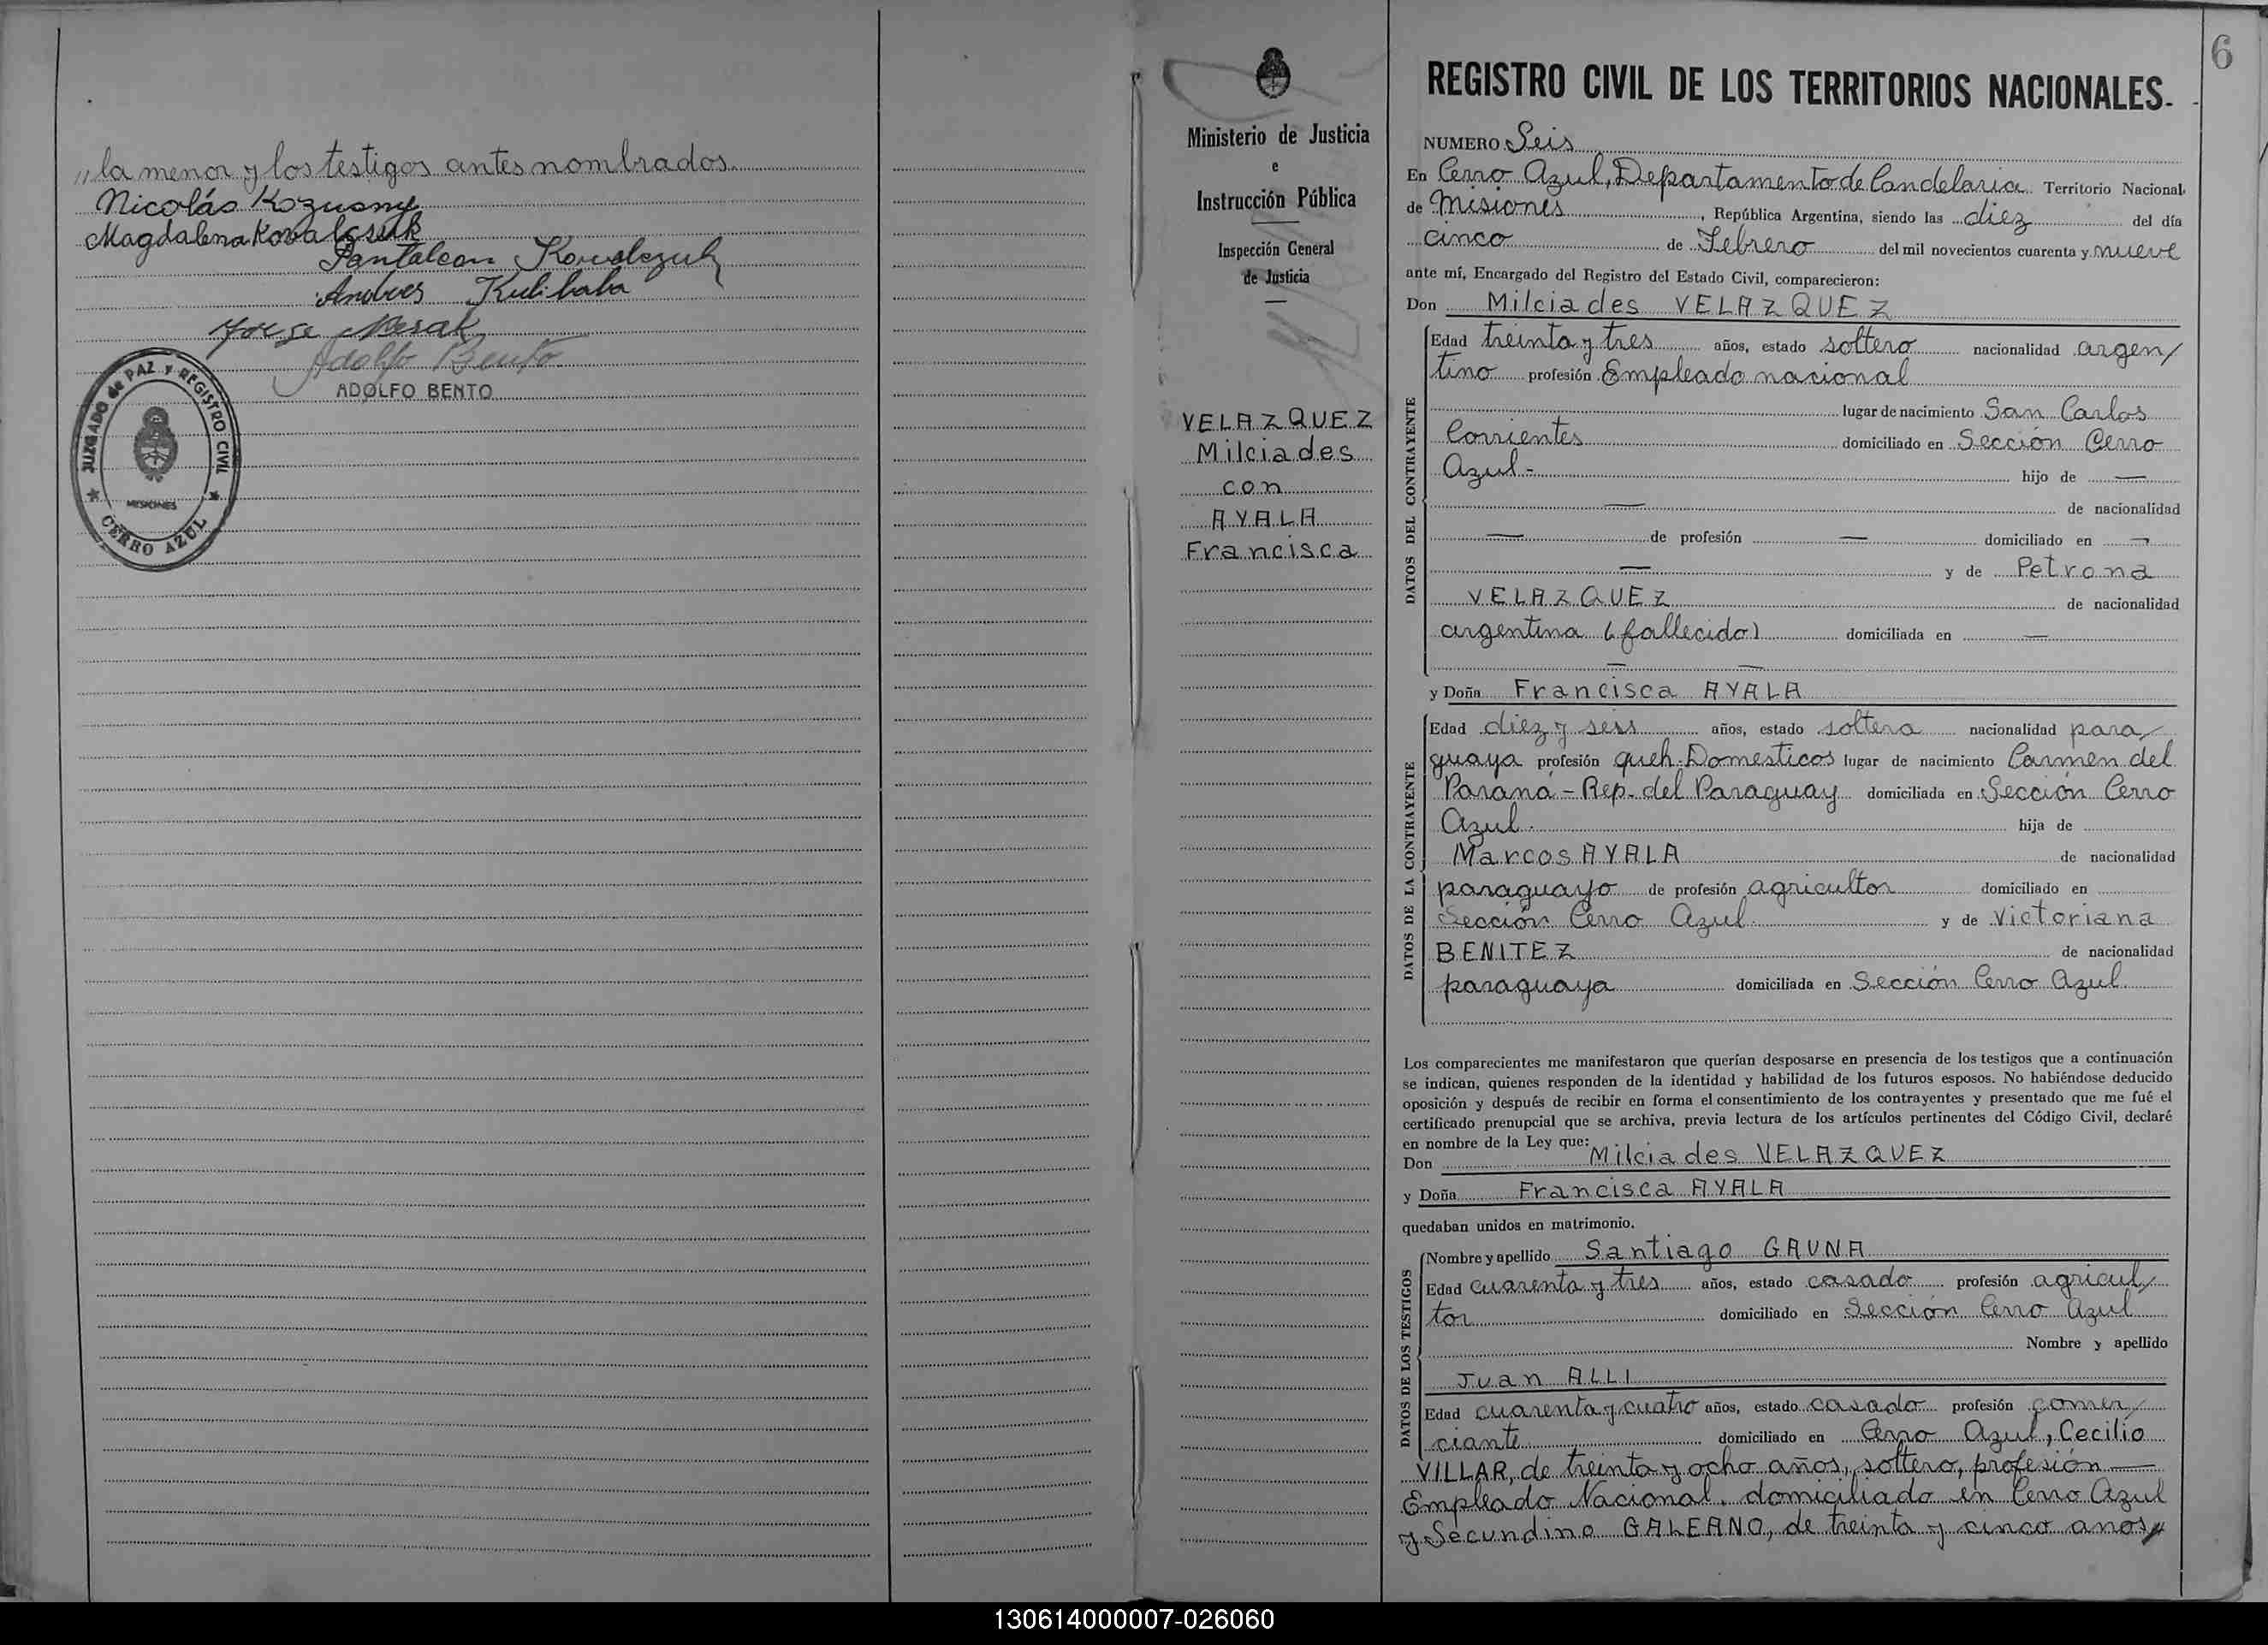 „la menor y los testigos antes nombrados.
Nicolás Kozusny
Magdalena Kovalcsuk
Pantaleon Kowalczuk
Andres Kulibaba
Jorge Mesak
Adolfo Bento
ADOLFO BENTO
JUZGADO de PAZ y REGISTRO CIVIL
MISIONES
CERRO AZUL
6
Ministerio de Justicia
e
Instrucción Pública
Inspección General
de Justicia
VELAZQUEZ
Milciades
con
AYALA
Francisca
REGISTRO CIVIL DE LOS TERRITORIOS NACIONALES.
NUMERO Seis
En Cerro Azul, Departamento de Candelaria Territorio Nacional
de Misiones, República Argentina, siendo las diez del día
cinco de Febrero del mil novecientos cuarenta y nueve
ante mí, Encargado del Registro del Estado Civil, comparecieron:
Don Milciades VELAZQUEZ
DATOS DEL CONTRAYENTE
Edad treinta y tres años, estado soltero nacionalidad argen/
tino profesión Empleado nacional
lugar de nacimiento San Carlos
Corrientes domiciliado en Sección Cerro
Azul- hijo de —
— de nacionalidad
— de profesión — domiciliado en —
— y de Petrona
VELAZQUEZ de nacionalidad
argentina (fallecida) domiciliada en —
— —
y Doña Francisca AYALA
DATOS DE LA CONTRAYENTE
Edad diez y seis años, estado soltera nacionalidad para/
guaya profesión queh. Domesticos lugar de nacimiento Carmen del
Paraná - Rep. del Paraguay domiciliada en Sección Cerro
Azul. hija de
Marcos AYALA de nacionalidad
paraguayo de profesión agricultor domiciliado en
Sección Cerro Azul y de Victoriana
BENITEZ de nacionalidad
paraguaya domiciliada en Sección Cerro Azul
Los comparecientes me manifestaron que querían desposarse en presencia de los testigos que a continuación
se indican, quienes responden de la identidad y habilidad de los futuros esposos. No habiéndose deducido
oposición y después de recibir en forma el consentimiento de los contrayentes y presentado que me fué el
certificado prenupcial que se archiva, previa lectura de los artículos pertinentes del Código Civil, declaré
en nombre de la Ley que:
Don Milciades VELAZQUEZ
y Doña Francisca AYALA
quedaban unidos en matrimonio.
DATOS DE LOS TESTIGOS
Nombre y apellido Santiago GAUNA
Edad cuarenta y tres años, estado casado profesión agricul/
tor domiciliado en Sección Cerro Azul
Nombre y apellido
Juan ALLI
Edad cuarenta y cuatro años, estado casado profesión comer/
ciante domiciliado en Cerro Azul, Cecilio
VILLAR, de treinta y ocho años, soltero, profesión —
Empleado Nacional, domiciliado en Cerro Azul
y Secundino GALEANO, de treinta y cinco años,
130614000007-026060